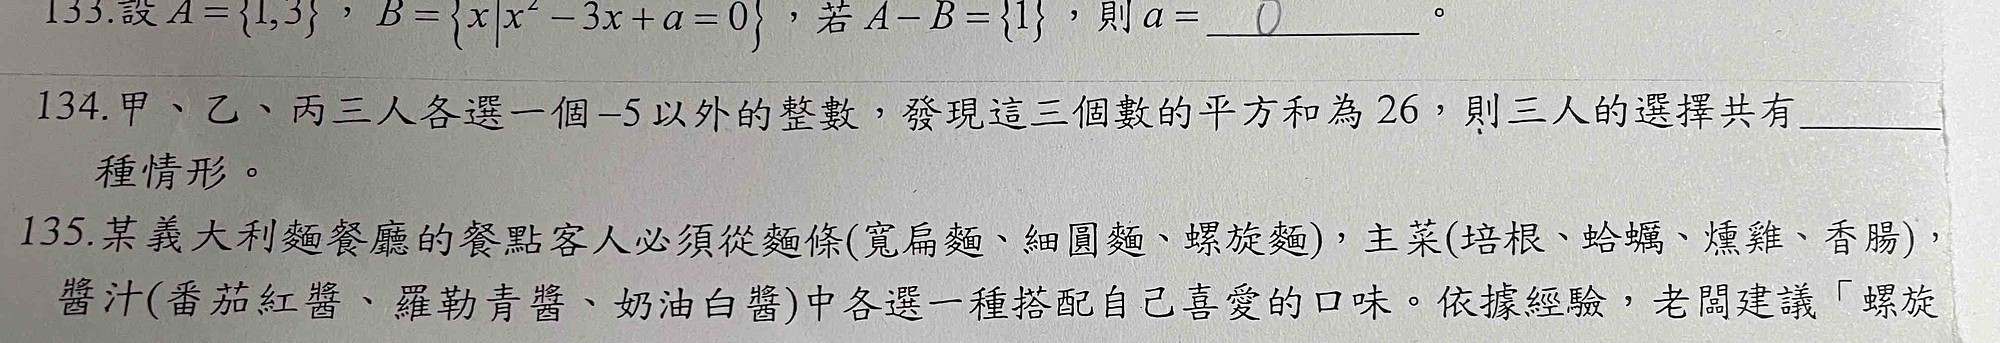 133.設 A={1,3}，B={x|x²-3x+a=0}，若 A-B={1}，則 a= 0 。
134.甲、乙、丙三人各選一個-5以外的整數，發現這三個數的平方和為 26，則三人的選擇共有______
種情形。
135.某義大利麵餐廳的餐點客人必須從麵條(寬扁麵、細圓麵、螺旋麵)，主菜(培根、蛤蠣、燻雞、香腸)，
醬汁(番茄紅醬、羅勒青醬、奶油白醬)中各選一種搭配自己喜愛的口味。依據經驗，老闆建議「螺旋